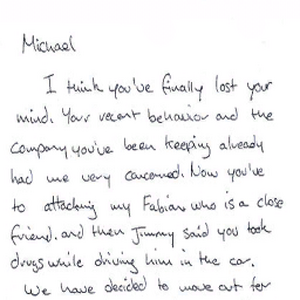 Michael
I think you've finally lost your
mind. Your recent behavior and the
company you've been keeping already
had me very concerned. Now you've
to attacking my Fabian who is a close
friend. and then Jimmy said you took
drugs while driving him in the car.
We have decided to move out for